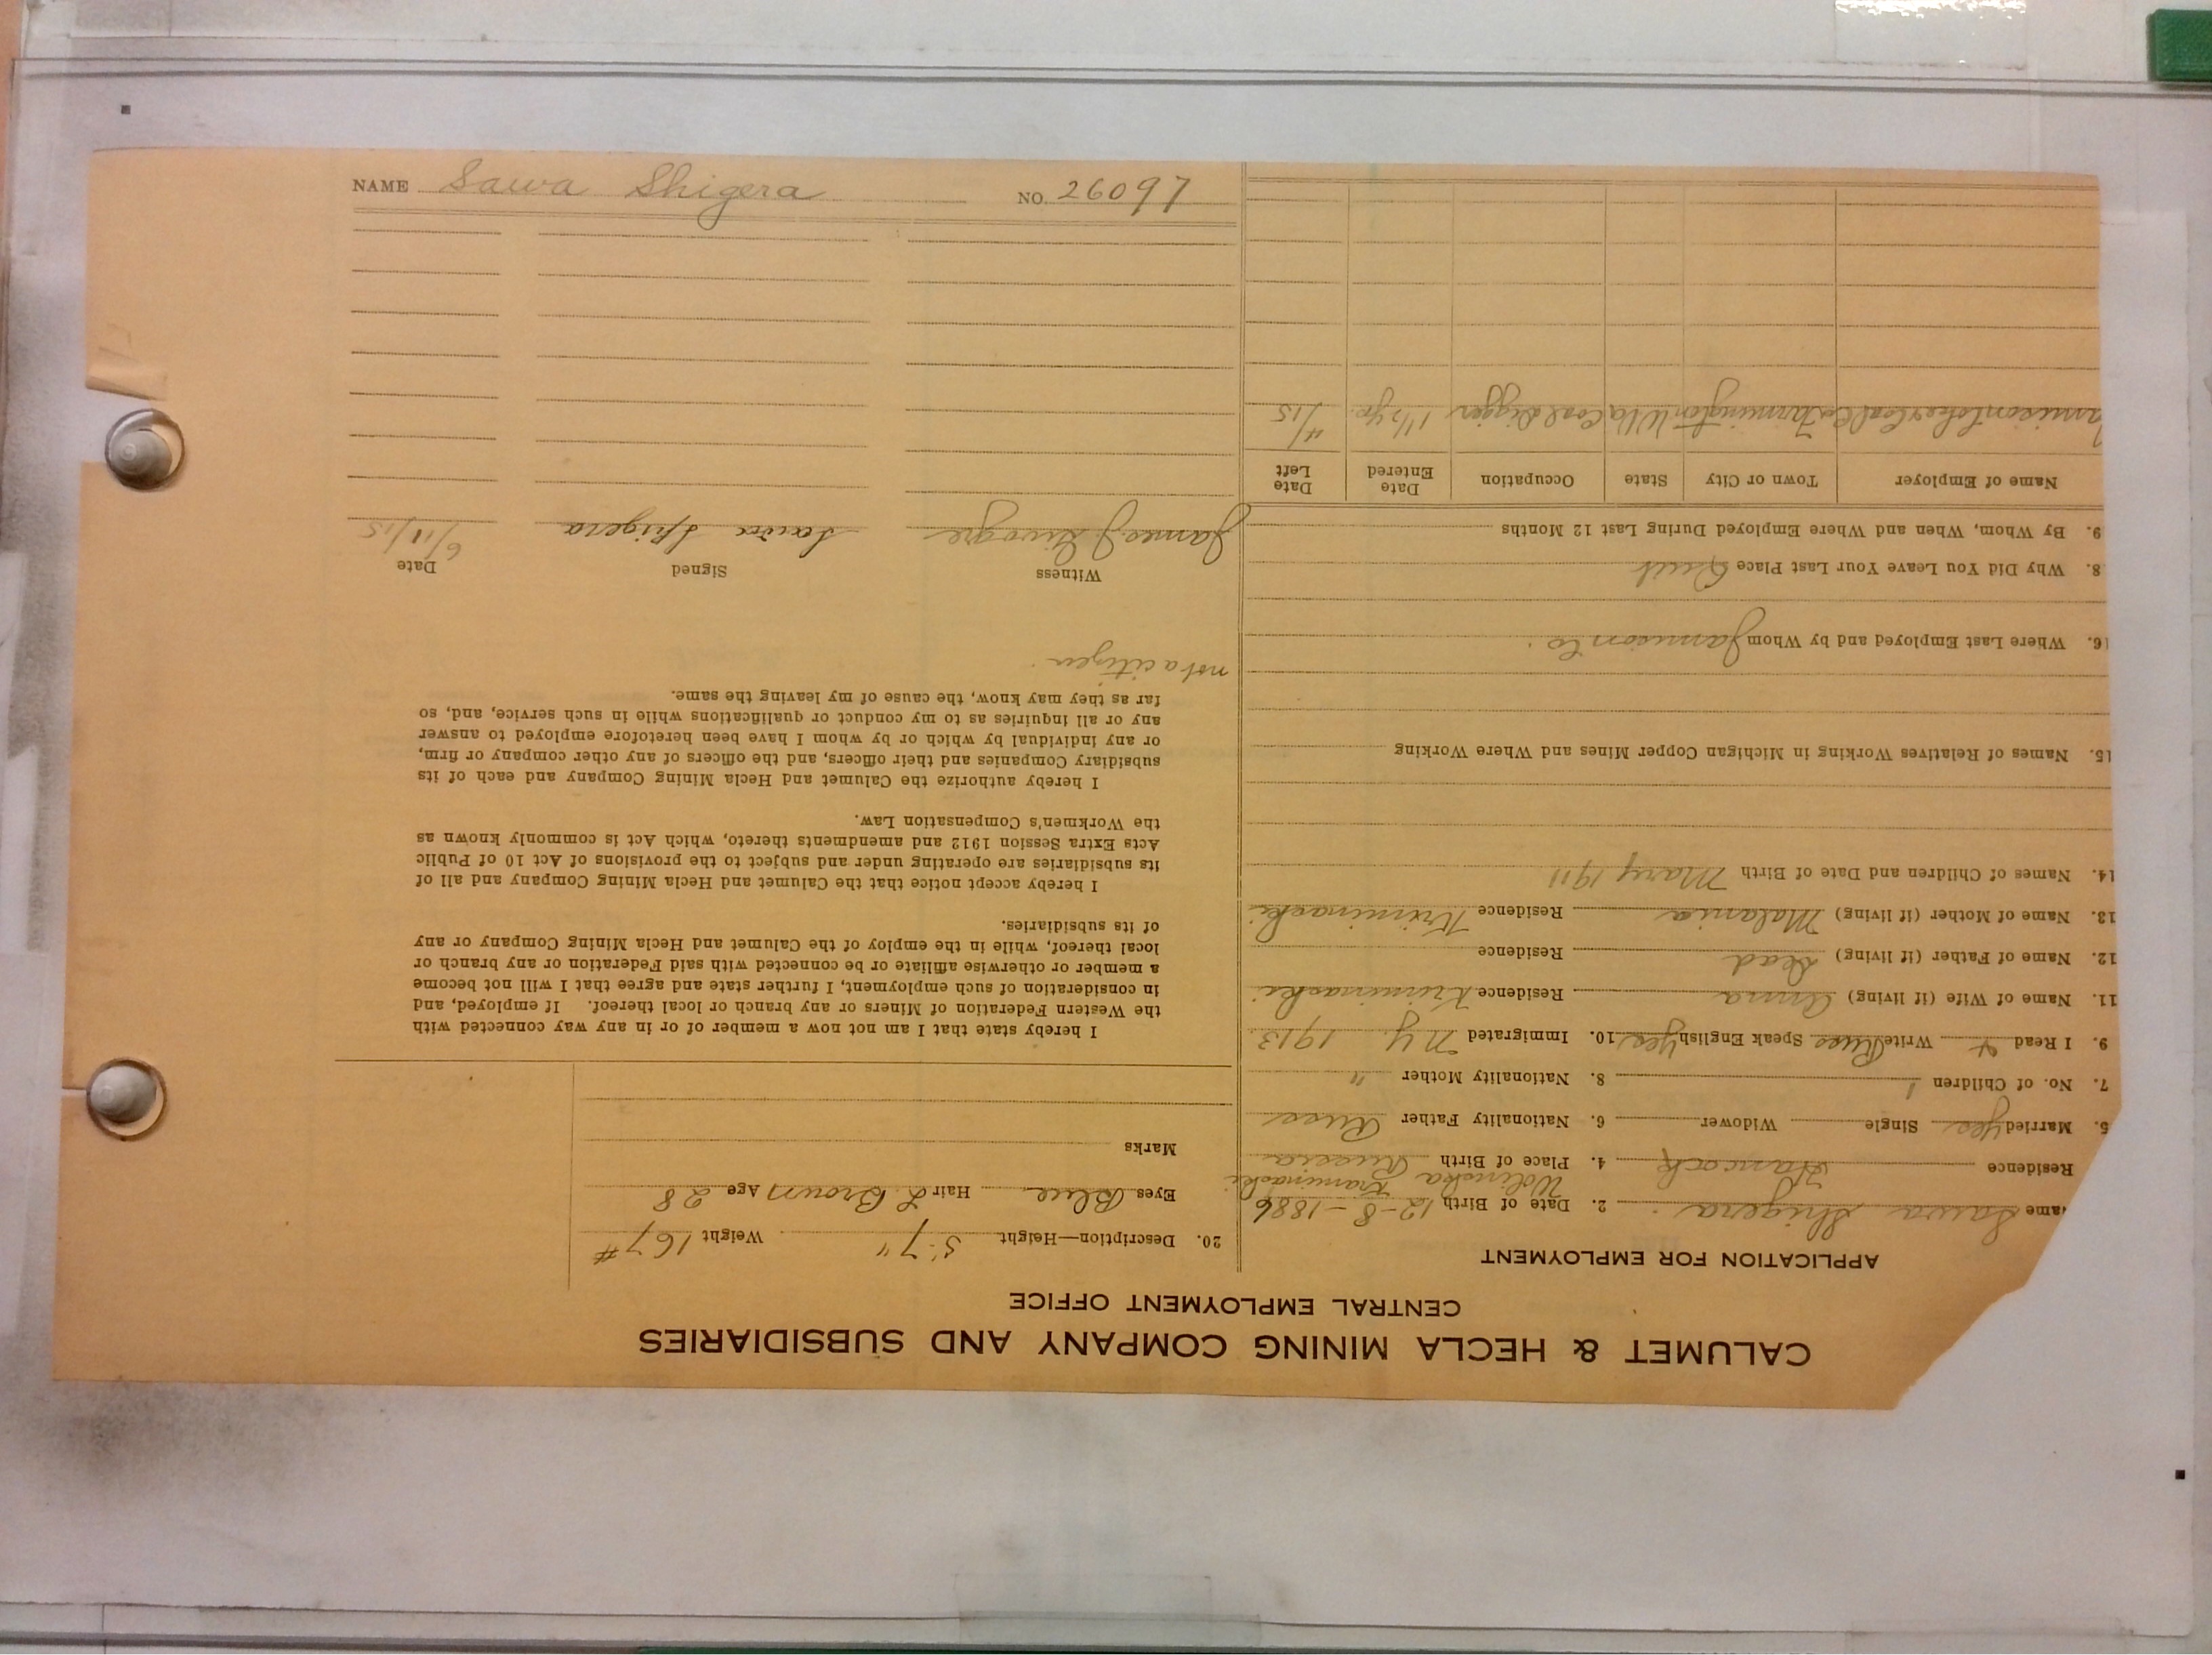 CALUMET & HECLA MINING COMPANY AND SUBSIDIARIES
CENTRAL EMPLOYMENT OFFICE
APPLICATION FOR EMPLOYMENT
ame Sawa Shigera 2. Date of Birth 12-8-1886
Wolinska
Residence Hancock 4. Place of Birth Russia
5. Married Yes Single Widower 6. Nationality Father Russ
7. No. of Children 1 8. Nationality Mother "
9. I Read + Write Russ Speak English Yes 10. Immigrated N.Y. 1913
11. Name of Wife (if living) Anna Residence
12. Name of Father (if living) Dead Residence
13. Name of Mother (if living) Malania Residence
14. Names of Children and Date of Birth Mary 1911
15. Names of Relatives Working in Michigan Copper Mines and Where Working
16. Where Last Employed and by Whom Jamison Co.
8. Why Did You Leave Your Last Place Quit
9. By Whom, When and Where Employed During Last 12 Months
Name of Employer Town or City State Occupation Date Entered Date Left
Jamison Coke & Coal Co Farmington W Va Coal Digger 1 1/2 yr 4/15
20. Description—Height 5' 7" Weight 167#
Eyes Blue Hair L. Brown Age 28
Marks
I hereby state that I am not now a member of or in any way connected with
the Western Federation of Miners or any branch or local thereof. If employed, and
in consideration of such employment, I further state and agree that I will not become
a member or otherwise affiliate or be connected with said Federation or any branch or
local thereof, while in the employ of the Calumet and Hecla Mining Company or any
of its subsidiaries.
I hereby accept notice that the Calumet and Hecla Mining Company and all of
its subsidiaries are operating under and subject to the provisions of Act 10 of Public
Acts Extra Session 1912 and amendments thereto, which Act is commonly known as
the Workmen's Compensation Law.
I hereby authorize the Calumet and Hecla Mining Company and each of its
subsidiary Companies and their officers, and the officers of any other company or firm,
or any individual by which or by whom I have been heretofore employed to answer
any or all inquiries as to my conduct or qualifications while in such service, and, so
far as they may know, the cause of my leaving the same.
not a citizen.
Witness Signed Date
James J. Sawa Shigera 6/11/15
NAME Sawa Shigera NO. 26097